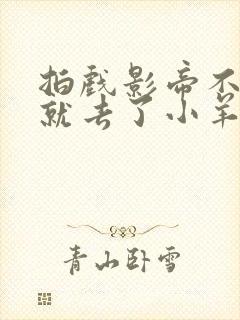 拍戏影帝不
就去了小羊
青山卧雪